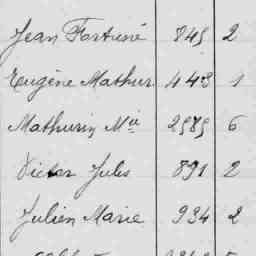 Jean Fortuné 849 2
Eugène Mathur 443 1
Mathurin Mie 2989 6
Victor Jules 891 2
Julien Marie 934 2